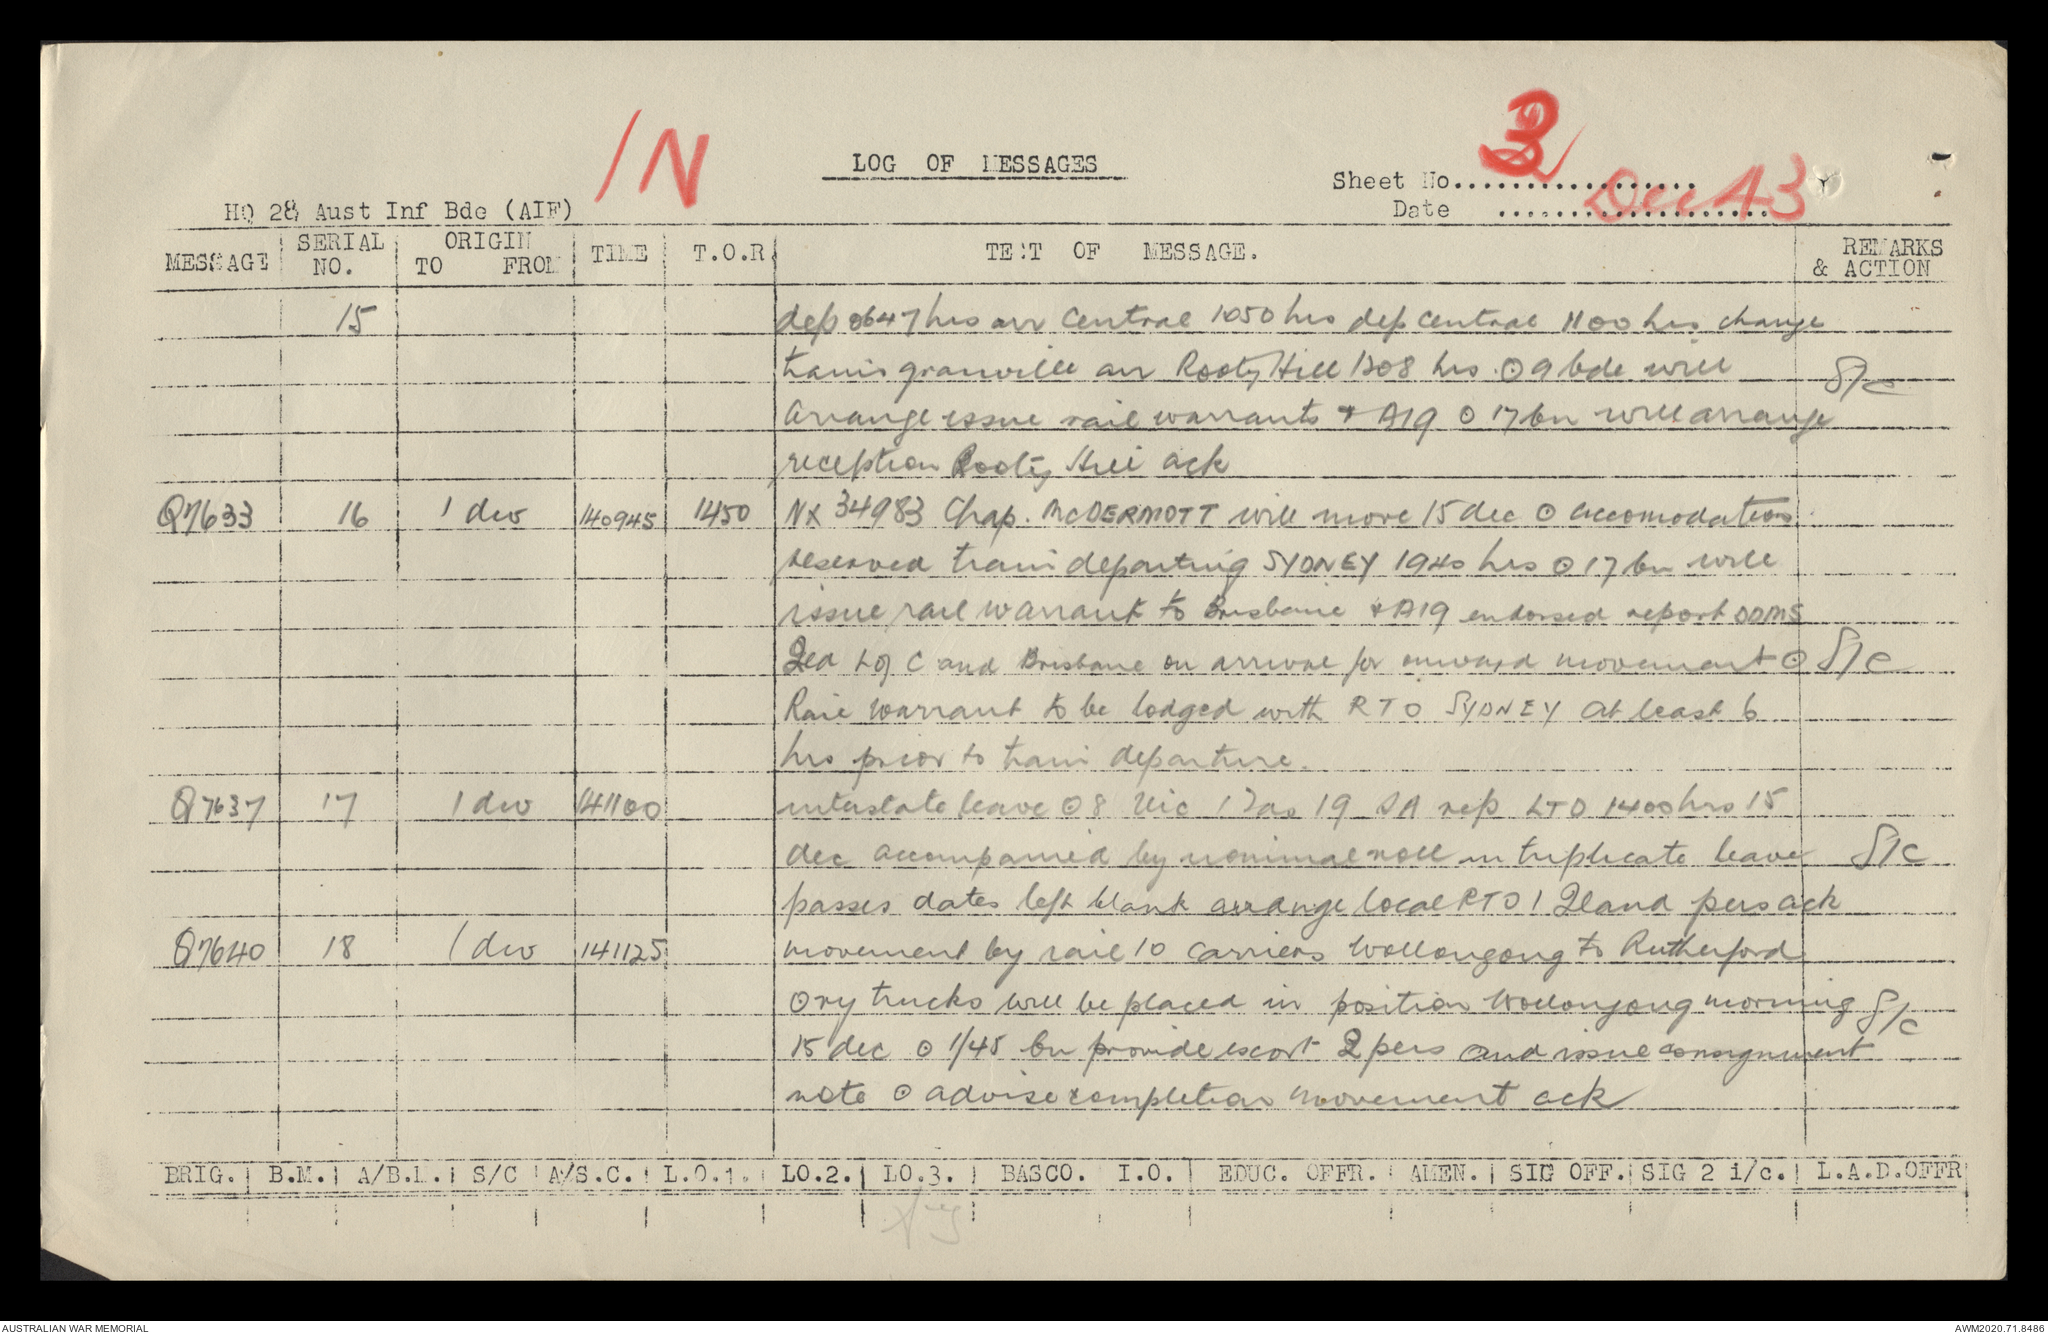 IN
LOG OF MESSAGES
Sheet No.................. 3
HQ 28 Aust Inf Bde (AIF)
Date .................... Dec 43
MESSAGE SERIAL NO. ORIGIN TO FROM TIME T.O.R TEXT OF MESSAGE. REMARKS & ACTION
15 dep 0647 hrs arr Central 1050 hrs dep central 1100 hrs change
train granville arr Rooty Hill 1208 hrs ⊙ 9 bde will S/C
arrange issue rail warrants + A19 ⊙ 17 bn will arrange
reception Rooty Hill ack
Q7633 16 1 div 140945 1450 NX 34983 Chap. McDERMOTT will move 15 dec ⊙ accomodation
reserved train departing SYDNEY 1940 hrs ⊙ 17 bn will
issue rail warrant to Brisbane + A19 endorsed report DDMS
Qld L of C and Brisbane on arrival for onward movement ⊙ S/C
Rail warrant to be lodged with RTO SYDNEY at least 6
hrs prior to train departure.
Q7637 17 1 div 141100 interstate leave ⊙ 8 Vic 1 Tas 19 SA rep LTD 1400 hrs 15
dec accompanied by nominal roll in triplicate leave S/C
passes dates left blank arrange local RTO 1 Qland pers ack
Q7640 18 1 div 141125 movement by rail 10 carriers Wollongong to Rutherford
⊙ ry trucks will be placed in position Wollongong morning S/C
15 dec ⊙ 1/45 bn provide escort 2 pers and issue consignment
note ⊙ advise completion movement ack
BRIG. B.M. A/B.M. S/C A/S.C. L.O.1. LO.2. LO.3. BASCO. I.O. EDUC. OFFR. AMEN. SIG OFF. SIG 2 i/c. L.A.D.OFFR
AUSTRALIAN WAR MEMORIAL
AWM2020.71.8486